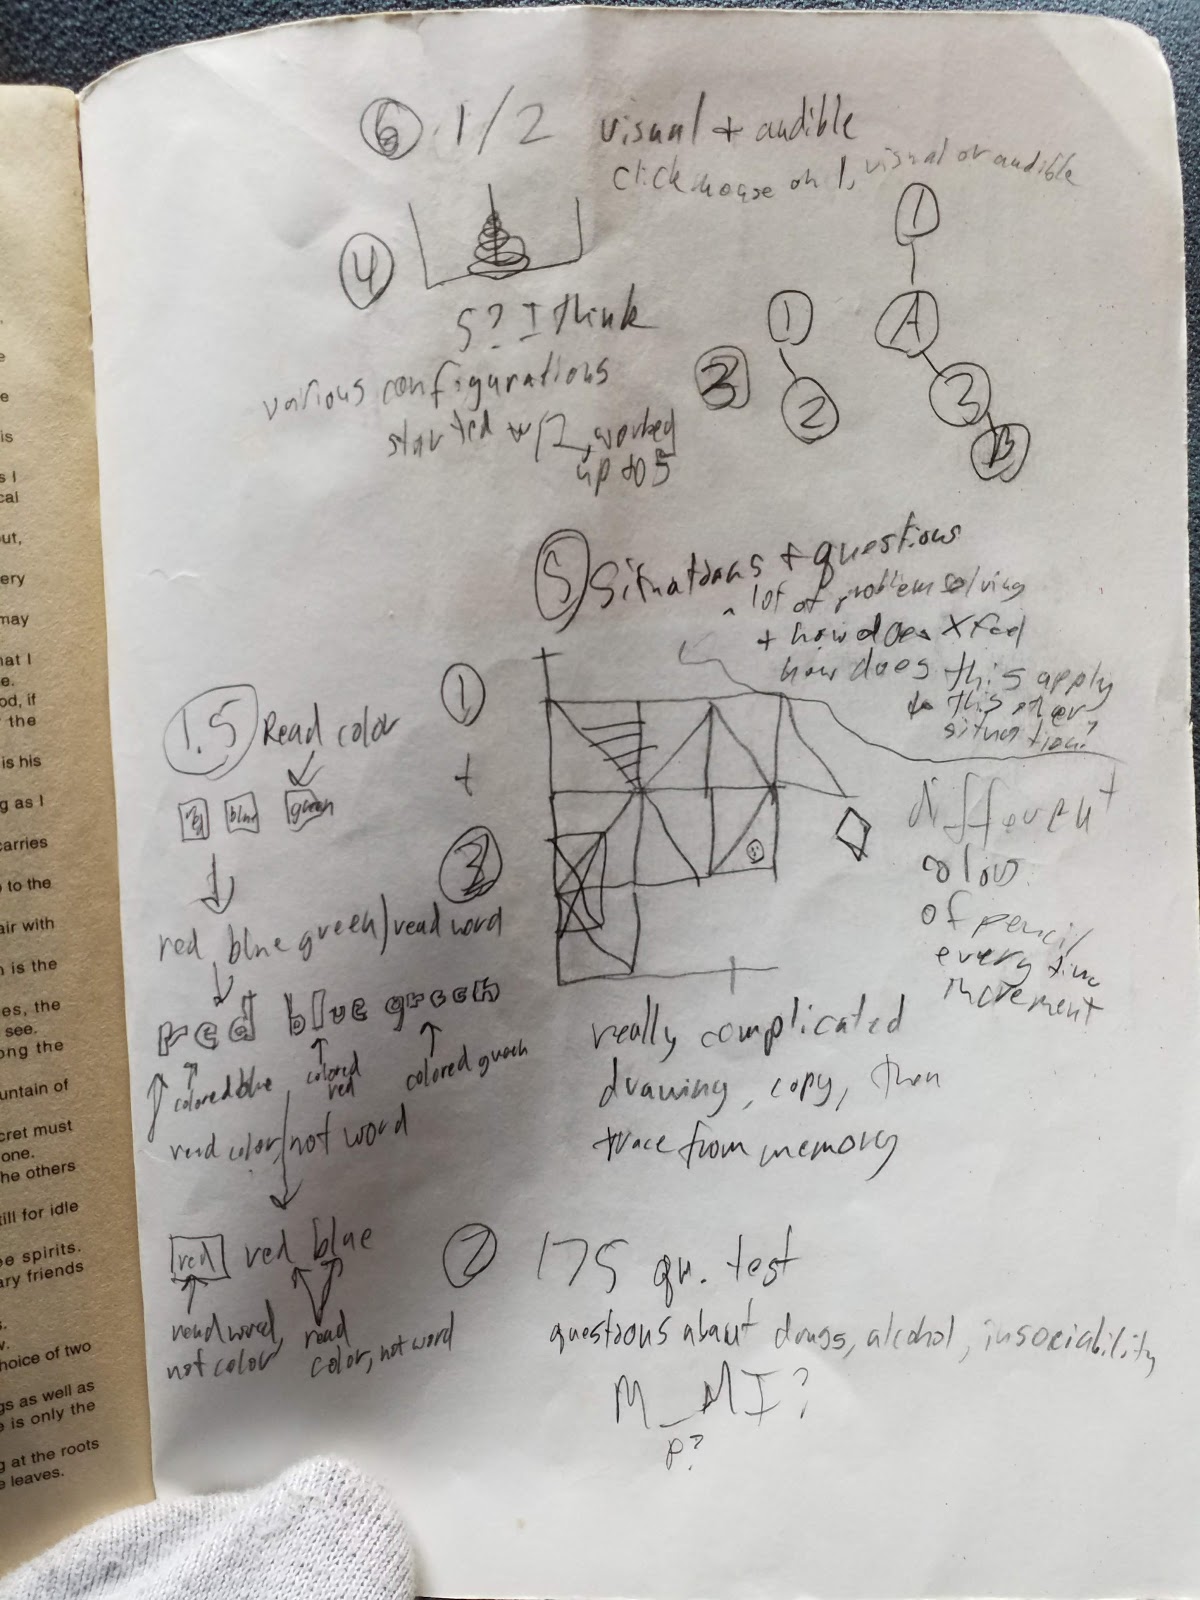 6 1/2 visual + audible
click mouse on 1, visual or audible
4
5? I think
various configurations
started w/2, worked
up to 5
3
1
2
1
A
3
B
5 Situations + questions
- lot of problem solving
+ how does X feel
how does this apply
to this other
situation?
1.5 Read color
red blue green
red blue green/read word
red blue green
colored blue
colored
red
colored green
read color/not word
red red blue
read word,
not color
read
color, not word
1
+
3
different
colors
of pencil
every time
increment
really complicated
drawing, copy, then
trace from memory
2 175 qu. test
questions about drugs, alcohol, insociability
M_MI?
P?
e
e
is
s I
cal
out,
ery
may
hat I
e.
od, if
the
is his
g as I
carries
to the
air with
is the
es, the
see.
ong the
untain of
cret must
one.
he others
till for idle
e spirits.
ary friends
s.
hoice of two
gs as well as
e is only the
g at the roots
e leaves.